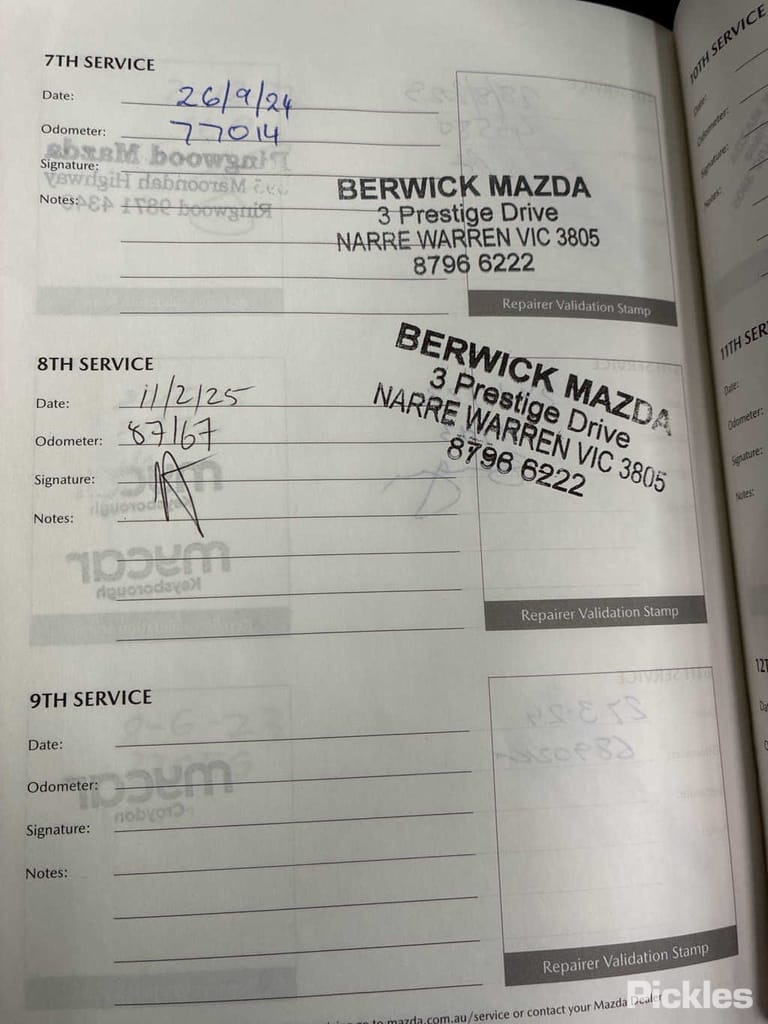 7TH SERVICE
Date: 26/9/24
Odometer: 77014
Signature:
Notes:
BERWICK MAZDA
3 Prestige Drive
NARRE WARREN VIC 3805
8796 6222
Repairer Validation Stamp
8TH SERVICE
Date: 11/2/25
Odometer: 87167
Signature:
Notes:
BERWICK MAZDA
3 Prestige Drive
NARRE WARREN VIC 3805
8796 6222
Repairer Validation Stamp
9TH SERVICE
Date:
Odometer:
Signature:
Notes:
Repairer Validation Stamp
go to mazda.com.au/service or contact your Mazda Dealer
Pickles
10TH SERVICE
Date:
Odometer:
Signature:
Notes:
11TH SER
Date:
Odometer:
Signature:
Notes:
12T